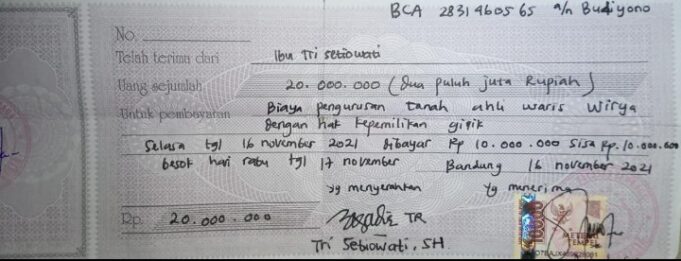 BCA 2831460565 a/n Budiyono
No.
Telah terima dari Ibu Tri Setiowati
Uang sejumlah 20.000.000 (dua puluh juta Rupiah)
Untuk pembayaran Biaya pengurusan tanah ahli waris Wirya
dengan hak kepemilikan girik
Selasa tgl 16 november 2021 dibayar Rp 10.000.000 sisa Rp. 10.000.000
besok hari rabu tgl 17 november
Bandung 16 november 2021
yg menyerahkan Yg menerima
Rp. 20.000.000
TR
Tri Setiowati, SH
10000
METERAI
TEMPEL